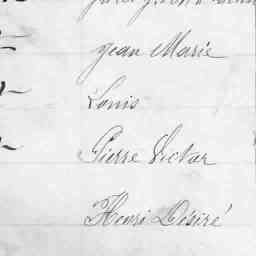 Jean Marie
Louis
Pierre Victor
Henri Désiré